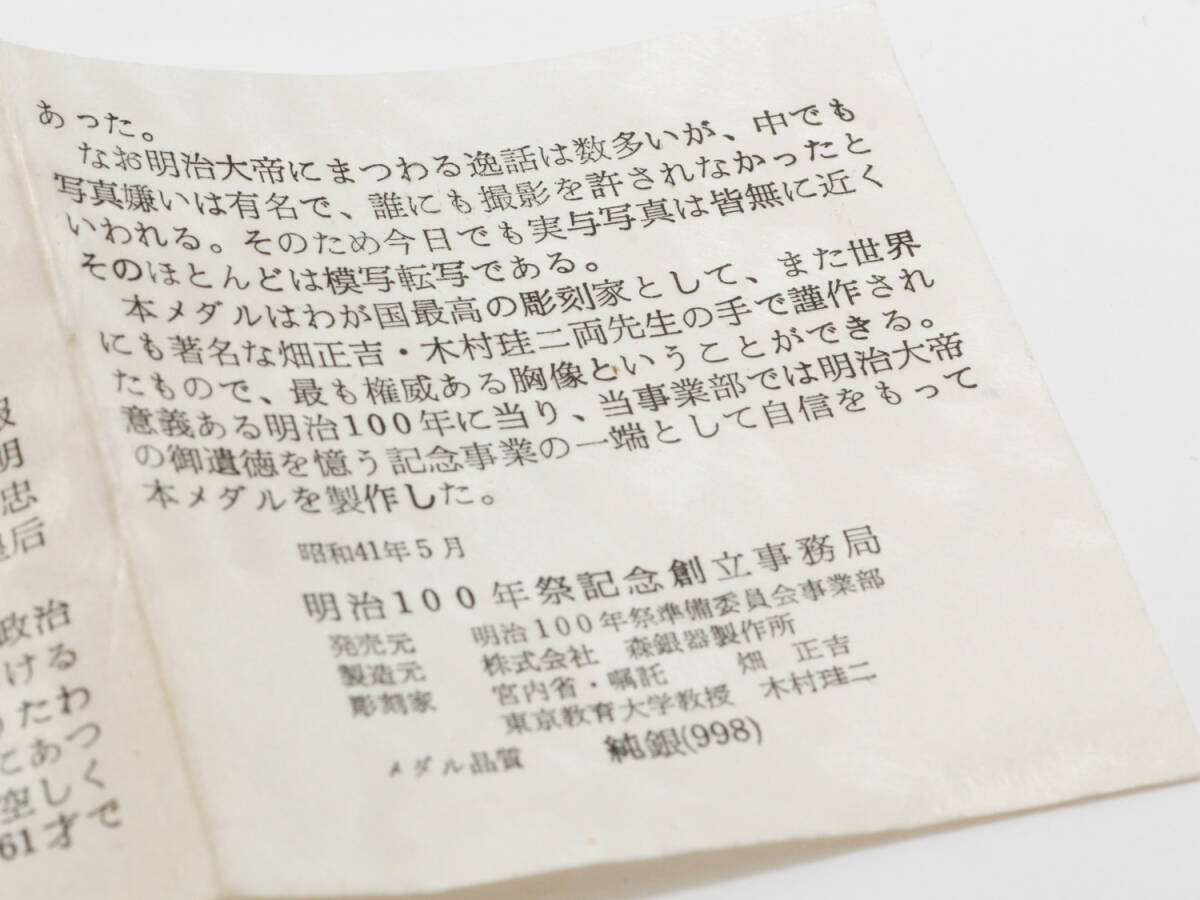 あった。
なお明治大帝にまつわる逸話は数多いが、中でも
写真嫌いは有名で、誰にも撮影を許されなかったと
いわれる。そのため今日でも実与写真は皆無に近く
そのほとんどは模写転写である。
本メダルはわが国最高の彫刻家として、また世界
にも著名な畑正吉・木村珪二両先生の手で謹作され
たもので、最も権威ある胸像ということができる。
意義ある明治100年に当り、当事業部では明治大帝
の御遺徳を憶う記念事業の一端として自信をもって
本メダルを製作した。
昭和41年5月
明治100年祭記念創立事務局
発売元 明治100年祭準備委員会事業部
製造元 株式会社 森銀器製作所
彫刻家 宮内省・嘱託 畑 正吉
東京教育大学教授 木村珪二
メダル品質 純銀(998)
明
忠
皇后
政治
ける
たわ
にあつ
空しく
61才で